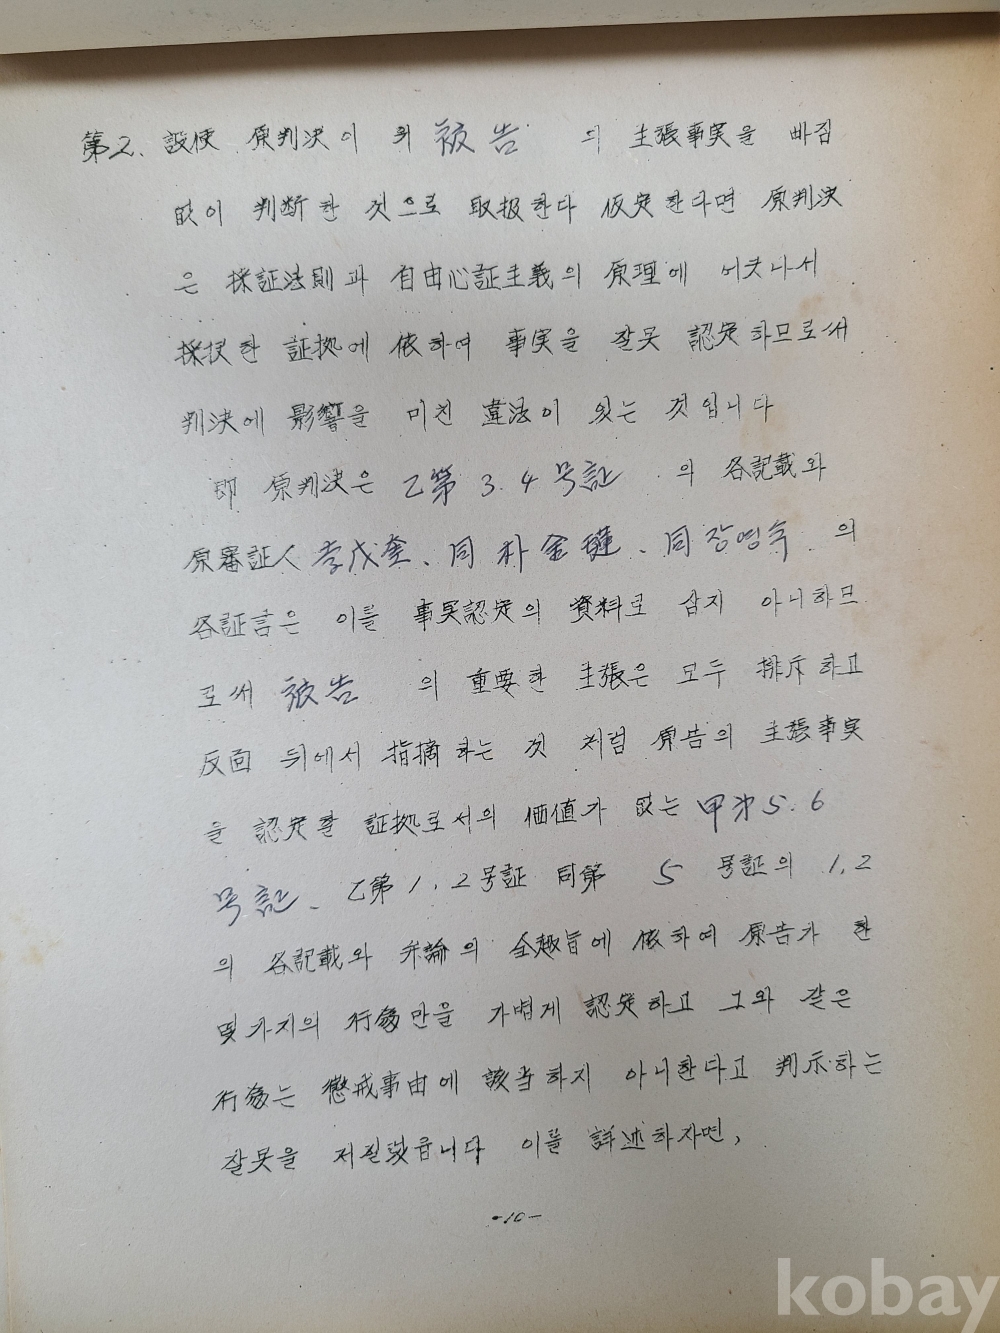 第2. 設使 原判決이 위 被告 의 主張事実을 빠짐
없이 判断한 것으로 取扱한다 仮定한다면 原判決
은 採証法則과 自由心証主義의 原理에 어긋나서
採択한 証拠에 依하여 事実을 잘못 認定하므로써
判決에 影響을 미친 違法이 있는 것입니다
即 原判決은 乙第 3. 4 号証 의 各記載와
原審証人 李戊奎、同 朴金 、同 장영수 의
各証言은 이를 事実認定의 資料로 삼지 아니하므
로써 被告 의 重要한 主張은 모두 排斥하고
反面 뒤에서 指摘하는 것 처럼 原告의 主張事実
을 認定할 証拠로서의 価値가 없는 甲才 5. 6
号証、乙第 1, 2 号証 同第 5 号証의 1, 2
의 各記載와 弁論의 全趣旨에 依하여 原告가 한
몇가지의 行為만을 가볍게 認定하고 그와 같은
行為는 懲戒事由에 該当하지 아니한다고 判示하는
잘못을 저질렀읍니다 이를 詳述하자면,
-10-
kobay